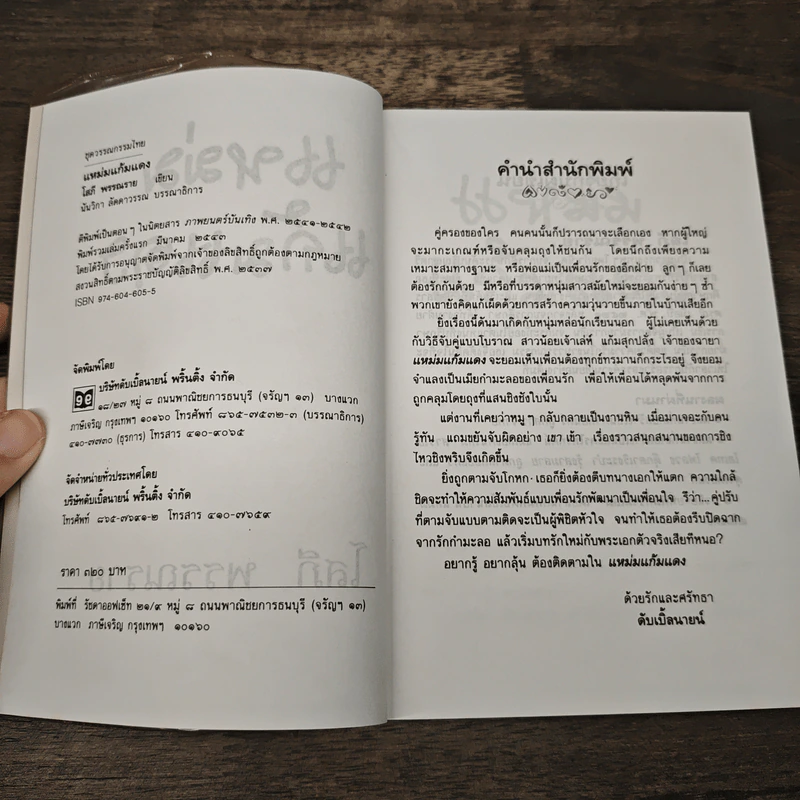 ชุดวรรณกรรมไทย
แหม่มแก้มแดง
โสภี พรรณราย เขียน
นันวิกา ลัดดาวรรณ บรรณาธิการ
ตีพิมพ์เป็นตอนๆ ในนิตยสาร ภาพยนตร์บันเทิง พ.ศ. ๒๕๔๑-๒๕๔๒
พิมพ์รวมเล่มครั้งแรก มีนาคม ๒๕๔๓
โดยได้รับการอนุญาตจัดพิมพ์จากเจ้าของลิขสิทธิ์ถูกต้องตามกฎหมาย
สงวนสิทธิ์ตามพระราชบัญญัติลิขสิทธิ์ พ.ศ. ๒๕๓๗
ISBN 974-604-605-5
จัดพิมพ์โดย
บริษัทดับเบิ้ลนายน์ พริ้นติ้ง จำกัด
๑๘/๒๗ หมู่ ๘ ถนนพาณิชยการธนบุรี (จรัญฯ ๑๓) บางแวก
ภาษีเจริญ กรุงเทพฯ ๑๐๑๖๐ โทรศัพท์ ๘๖๕-๗๕๓๒-๓ (บรรณาธิการ)
๔๑๐-๗๗๓๐ (ธุรการ) โทรสาร ๔๑๐-๙๐๖๕
จัดจำหน่ายทั่วประเทศโดย
บริษัทดับเบิ้ลนายน์ พริ้นติ้ง จำกัด
โทรศัพท์ ๘๖๕-๗๖๙๑-๒ โทรสาร ๔๑๐-๗๖๕๙
ราคา ๓๒๐ บาท
พิมพ์ที่ รัชดาออฟเซ็ท ๒๑/๙ หมู่ ๘ ถนนพาณิชยการธนบุรี (จรัญฯ ๑๓)
บางแวก ภาษีเจริญ กรุงเทพฯ ๑๐๑๖๐
คำนำสำนักพิมพ์
คู่ครองของใคร คนคนนั้นก็ปรารถนาจะเลือกเอง หากผู้ใหญ่
จะมากะเกณฑ์หรือจับคลุมถุงให้ชนกัน โดยนึกถึงเพียงความ
เหมาะสมทางฐานะ หรือพ่อแม่เป็นเพื่อนรักของอีกฝ่าย ลูกๆ ก็เลย
ต้องรักกันด้วย มีหรือที่บรรดาหนุ่มสาวสมัยใหม่จะยอมกันง่ายๆ ซ้ำ
พวกเขายังคิดแก้เผ็ดด้วยการสร้างความวุ่นวายขึ้นภายในบ้านเสียอีก
ยิ่งเรื่องนี้ดันมาเกิดกับหนุ่มหล่อนักเรียนนอก ผู้ไม่เคยเห็นด้วย
กับวิธีจับคู่แบบโบราณ สาวน้อยเจ้าเล่ห์ แก้มสุกปลั่ง เจ้าของฉายา
แหม่มแก้มแดง จะยอมเห็นเพื่อนต้องทุกข์ทรมานก็กระไรอยู่ จึงยอม
จำแลงเป็นเมียกำมะลอของเพื่อนรัก เพื่อให้เพื่อนได้หลุดพ้นจากการ
ถูกคลุมโดยถุงที่แสนชิงชังใบนั้น
แต่งานที่เคยว่าหมูๆ กลับกลายเป็นงานหิน เมื่อมาเจอะกับคน
รู้ทัน แถมขยันจับผิดอย่าง เขา เข้า เรื่องราวสนุกสนานของการชิง
ไหวชิงพริบจึงเกิดขึ้น
ยิ่งถูกตามจับโกหก เธอก็ยิ่งต้องตีบทนางเอกให้แตก ความใกล้
ชิดจะทำให้ความสัมพันธ์แบบเพื่อนรักพัฒนาเป็นเพื่อนใจ รึว่า...คู่ปรับ
ที่ตามจับแบบตามติดจะเป็นผู้พิชิตหัวใจ จนทำให้เธอต้องรีบปิดฉาก
จากรักกำมะลอ แล้วเริ่มบทรักใหม่กับพระเอกตัวจริงเสียทีหนอ?
อยากรู้ อยากลุ้น ต้องติดตามใน แหม่มแก้มแดง
ด้วยรักและศรัทธา
ดับเบิ้ลนายน์